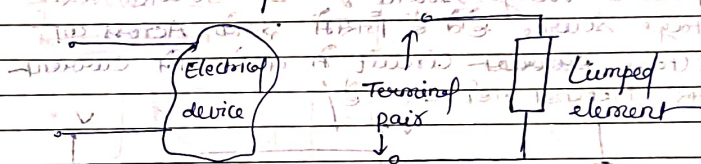 Electrical
device
Terminal
pair
Lumped
element